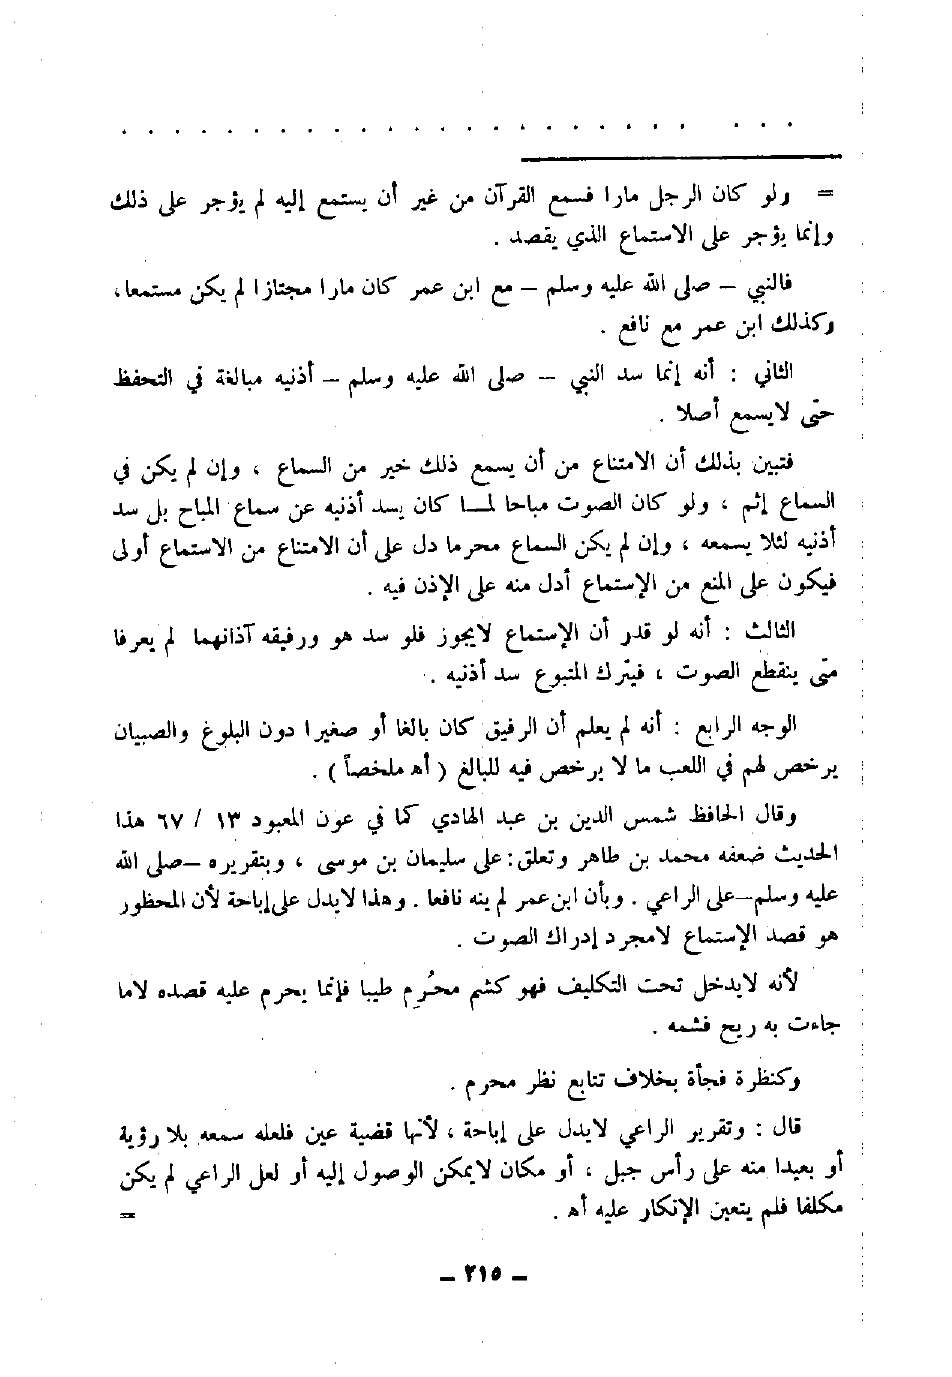 . . . . . . . . . . . . . . . . . . . . . . . . .
= ولو كان الرجل مارا فسمع القرآن من غير أن يستمع إليه لم يؤجر على ذلك
وإنما يؤجر على الاستماع الذي يقصد .
فالنبي – صلى الله عليه وسلم – مع ابن عمر كان مارا مجتازا لم يكن مستمعا،
وكذلك ابن عمر مع نافع .
الثاني : أنه إنما سد النبي – صلى الله عليه وسلم – أذنيه مبالغة في التحفظ
حتى لايسمع أصلا .
فتبين بذلك أن الامتناع من أن يسمع ذلك خير من السماع ، وإن لم يكن في
السماع إثم ، ولو كان الصوت مباحا لمــا كان يسد أذنيه عن سماع المباح بل سد
أذنيه لئلا يسمعه ، وإن لم يكن السماع محرما دل على أن الامتناع من الاستماع أولى
فيكون على المنع من الإستماع أدل منه على الإذن فيه .
الثالث : أنه لو قدر أن الإستماع لايجوز فلو سد هو ورفيقه آذانهما لم يعرفا
متى ينقطع الصوت ، فيترك المتبوع سد أذنيه .
الوجه الرابع : أنه لم يعلم أن الرفيق كان بالغا أو صغيرا دون البلوغ والصبيان
يرخص لهم في اللعب ما لا يرخص فيه للبالغ ( أه ملخصاً ) .
وقال الحافظ شمس الدين بن عبد الهادي كما في عون المعبود ١٣ / ٦٧ هذا
الحديث ضعفه محمد بن طاهر وتعلق: على سليمان بن موسى ، وبتقريره –صلى الله
عليه وسلم–على الراعي . وبأن ابن عمر لم ينه نافعا . وهذا لايدل على إباحة لأن المحظور
هو قصد الإستماع لامجرد إدراك الصوت .
لأنه لايدخل تحت التكليف فهو كشم محُرِم طيبا فإنما يحرم عليه قصده لاما
جاءت به ريح فشمه .
وكنظرة فجأة بخلاف تتابع نظر محرم .
قال : وتقرير الراعي لايدل على إباحة ، لأنها قضية عين فلعله سمعه بلا رؤية
أو بعيدا منه على رأس جبل ، أو مكان لايمكن الوصول إليه أو لعل الراعي لم يكن
مكلفا فلم يتعين الإنكار عليه أه . =
– ٢١٥ –